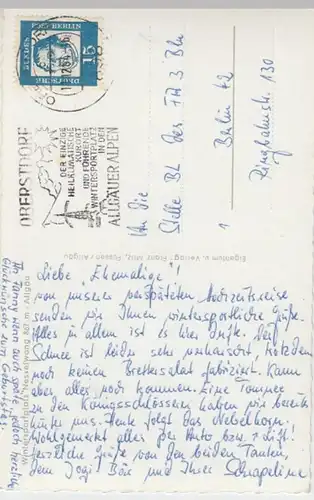 DEUTSCHE
POST BERLIN
15
OBERSTDORF
DER EINZIGE
HEILKLIMATISCHE
KURORT
UND FÜHRENDE
WINTERSPORTPLATZ
IN DEN
ALLGÄUER ALPEN
An die
Stelle BL Des FA 3 Bln
1 Berlin 42
Ringbahnstr. 130
Eigentum u. Verlag: Franz Milz, Füssen / Allgäu
Wintersportplatz Nesselwang 867 m / Allgäu
Liebe "Ehemalige"!
von unserer verspäteten Hochzeitsreise
senden wir Ihnen wintersportliche Grüße.
Alles in allem ist es hier dufte. Der
Schnee ist leider sehr pulverisiert, trotzdem
noch keinen Brettersalat fabriziert. Kann
aber alles noch kommen. Eine
zu den Königsschlössern haben wir bereits
hinter uns. Heute folgt das Nebelhorn.
Wohlgemerkt alles per Auto bzw.
herzliche Grüße von den beiden Tanten,
dem Jogi Bär und Ihrer
Glückwünsche zum Geburtstag